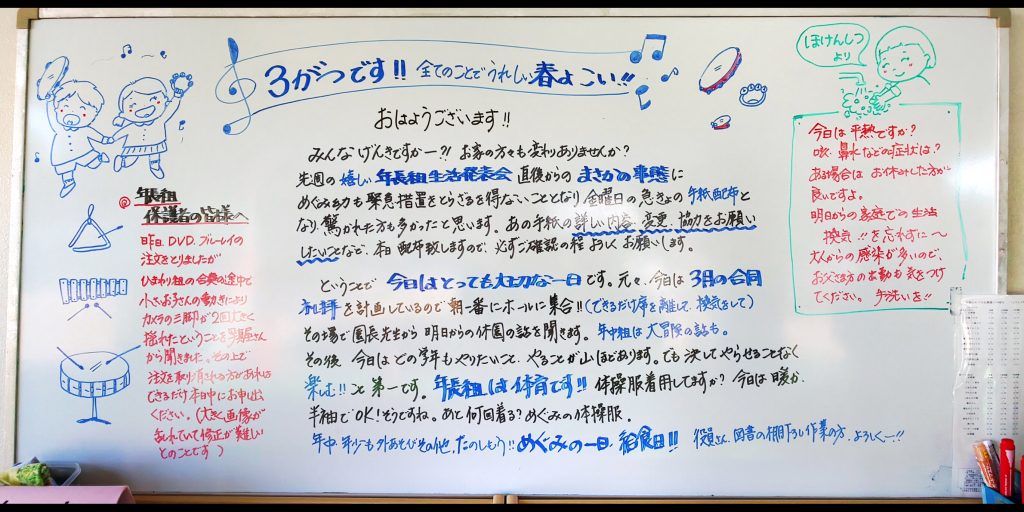 3がつです!! 全てのことでうれしい春よこい!!
おはようございます!!
みんなげんきですかー?! お家の方々も変わりありませんか?
先週の嬉しい年長組生活発表会 直後からのまさかの事態に
めぐみ幼も緊急措置をとらざるを得ないこととなり 金曜日の急きょの手紙配布と
なり驚かれた方も多かったと思います。あの手紙の詳しい内容 変更、協力をお願い
したいことなど、本日配布致しますので、必ずご確認の程よろしくお願いします。
ということで 今日はとっても大切な一日です。元々、今日は3月の合同
礼拝を計画しているので朝一番にホールに集合!!(できるだけ席を離して、換気をして)
その場で園長先生から明日からの休園の話を聞きます。年中組は大冒険の話も。
その後 今日はどの学年もやりたいこと、やることが山ほどあります。でも決してやらせることなく
楽しむ!!こと第一です。年長組は体育です!! 体操服着用してますか? 今日は暖か、
半袖でOK!そうですね。あと何回着る? めぐみの体操服。
年中 年少も外あそびその他、たのしもう!! めぐみの一日、給食日!! 役員さん、図書の棚下ろし作業の方、よろしくー!!
@ 年長組
保護者の皆様へ
昨日、DVD、ブルーレイの
注文をとりましたが
ひまわり組の合奏の途中で
小さなお子さんの動きにより
カメラの三脚が2回大きく
揺れたということを写真屋さん
から聞きました。その上で
注文を取り消される方があれば
できるだけ本日中にお申し出
ください。(大きく画像が
乱れていて修正が難しい
とのことです)
ほけんしつ
より
今日は平熱ですか?
咳、鼻水などの症状は?
ある場合はお休みした方が
良いですよ。
明日からの家庭での生活
換気!!を忘れずに〜
大人からの感染が多いので、
お父さま方のお勤も気をつけ
てください。手洗いを!!